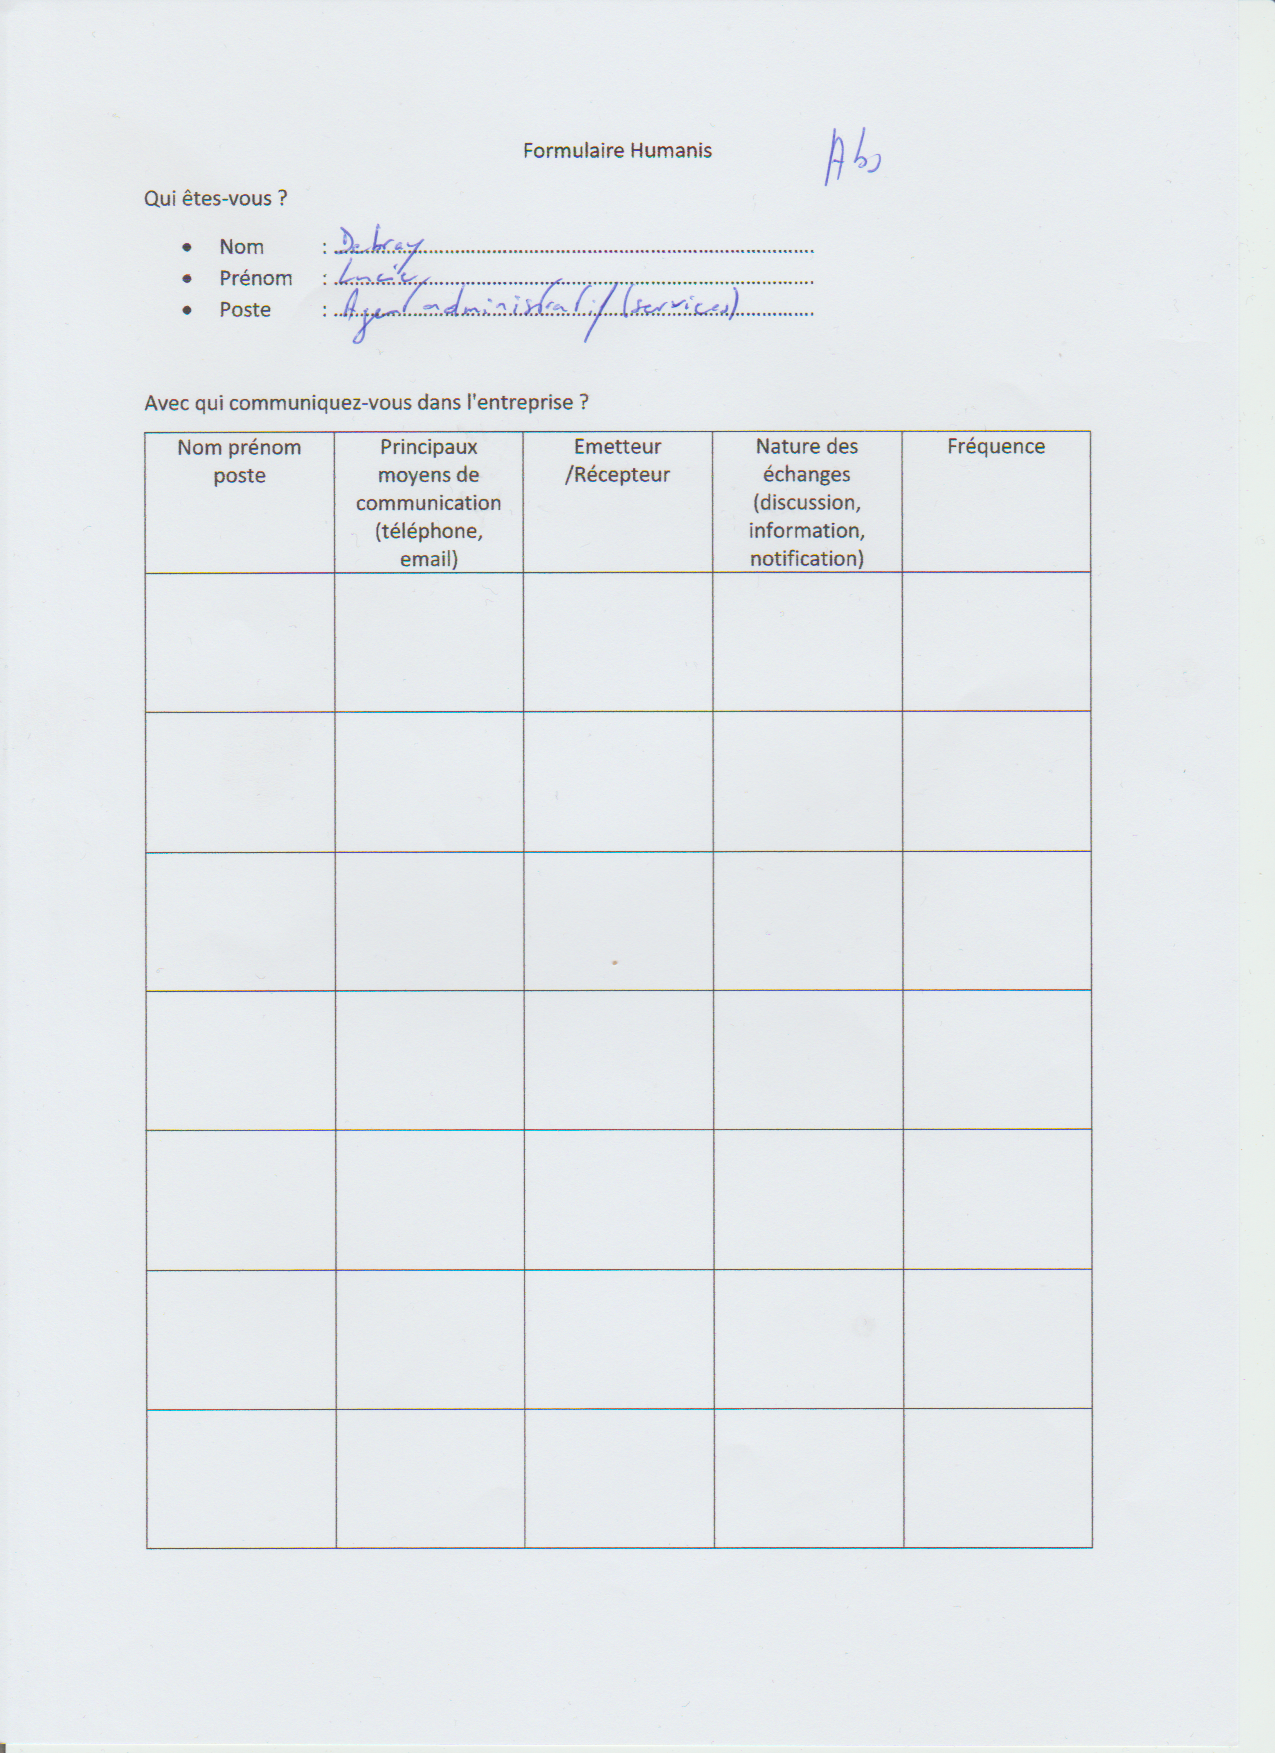 Formulaire Humanis
Abs
Qui êtes-vous ?
• Nom : Debray
• Prénom : Lucie
• Poste : Agent administratif (services)
Avec qui communiquez-vous dans l'entreprise ?
Nom prénom
poste
Principaux
moyens de
communication
(téléphone,
email)
Emetteur
/Récepteur
Nature des
échanges
(discussion,
information,
notification)
Fréquence